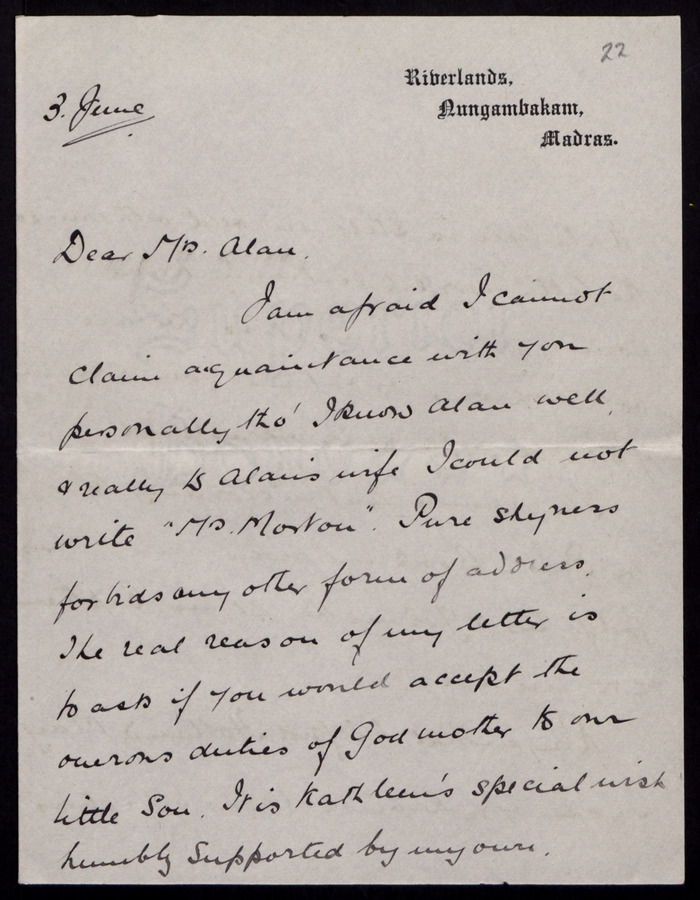 22
Riverlands,
Nungambakam,
Madras.
3. June
Dear Mrs. Alan.
I am afraid I cannot
claim acquaintance with you
personally tho' I know Alan well,
& really to Alan's wife I could not
write "Mrs. Morton". Pure shyness
forbids any other form of address.
The real reason of my letter is
to ask if you would accept the
onerous duties of Godmother to our
little Son. It is Kathleen's special wish
humbly supported by my own.